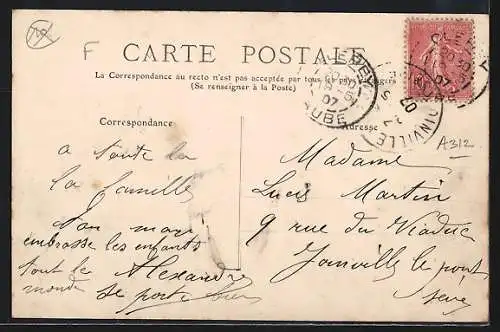 F
CARTE POSTALE
La Correspondance au recto n'est pas acceptée par tous les pays étrangers
(Se renseigner à la Poste)
07
AUBE
JOINVILLE
07
Correspondance
Adresse
A312
a toute la
la famille
ton mari
embrasse les enfants
tout le Alexandre
monde se porte bien
Madame
Lucis Martin
9 rue du Viaduc
Joinville le pont
Seine